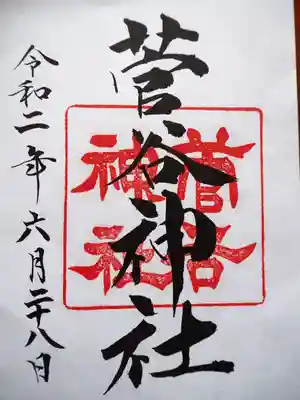 菅谷神社
菅谷
神社
令和二年六月二十八日